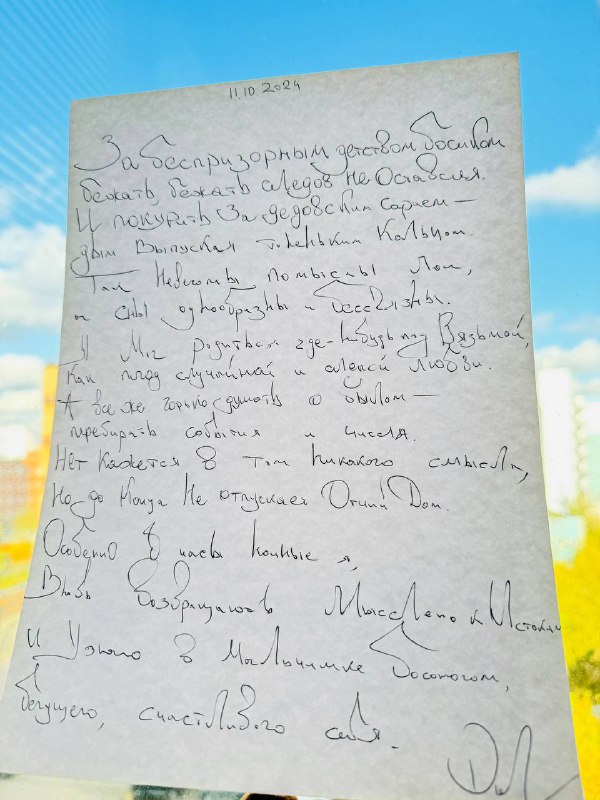 11.10.2024
За беспризорным детством босиком
бежать, бежать следов не оставляя.
И покурить за дедовским сараем —
дым выпуская тоненьким кольцом.
Там невесомы помыслы
и сны однообразны и бессвязны.
Я мог родиться где-нибудь под Вязьмой,
как плод случайной и слепой любви.
А все же горько думать о былом —
перебирать события и числа.
Нет кажется в том никакого смысла,
Но до конца не отпускает Отчий Дом.
Особенно в часы ночные я,
Вновь возвращаюсь мысленно к истокам
И узнаю в мальчишке босоногом,
бегущего, счастливого себя.